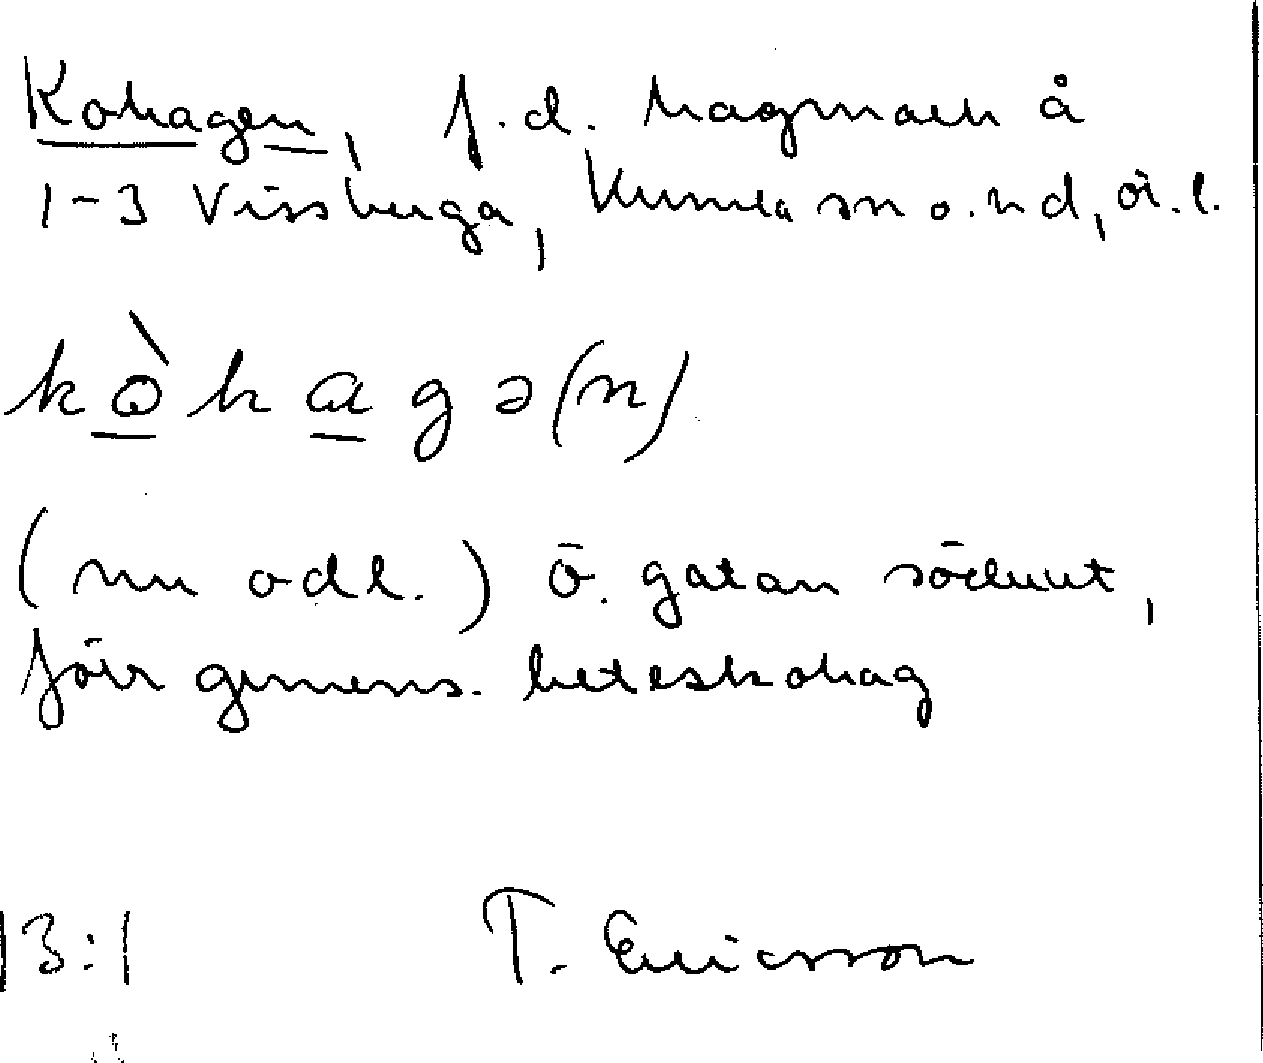 Kohagen, f.d. hagmark å
1-3 Vissberga, Kumla sn o. hd, ö.l.
kò̱ha̱gə(n)
(nu odl.) Ö. gatan söderut,
förr gemens. beteskohag
13:1 T. Ericsson